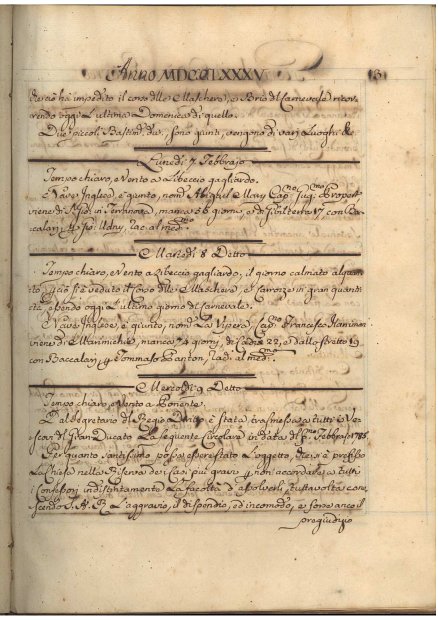 ANNO MDCCLXXXV 13
ha impedito il corso dlle Maschere, e Brio dl Carnevale ricor-
rendo oggi L'ultima Domenica di quello.
Due piccoli Bastim. sono giunti, vengono di vari Luoghi
Lunedì 7 Febbrajo
Tempo chiaro, e Vento a Libeccio gagliardo.
E Nave Inglese, è giunto, nom. Abiguel Mary Cap.
viene di in Terranova, manca 56 giorni, e di 17 con Ba-
calari, al med.
Martedì 8 Detto
Tempo chiaro, e Vento a Libeccio gagliardo, il giorno calmato alquan-
to, si è veduto il Corso dlle Maschere, e Carrozze in gran quanti-
tà, essendo oggi L'ultimo giorno di Carnevale.
E Nave Inglese, è giunto, nom. La Vipera, Cap. Francesco
viene di manca 74 giorni, di Cadice 22, e dallo Stretto 19
con Baccalari, Tommaso Panton, al med.
Mercoledì 9 Detto
Tempo chiaro, e Vento a Ponente.
Dal Segretario dl Regio Diritto è stata trasmessa a tutti i Ve-
scovi dl Gran Ducato La seguente Circolare in data dl p.mo Febbrajo 1785
Per quanto santissimo possa essere stato L'oggetto, che si è prefisso
La Chiesa nella Riserva dei Casi più gravi non accordare a tutti
i Confessori indistintamente La facoltà d'assolverli, tuttavolta cono-
scendo S. A. R. L'aggravio, il dispendio, ed incomodo, e forse anco il
pregiudizio